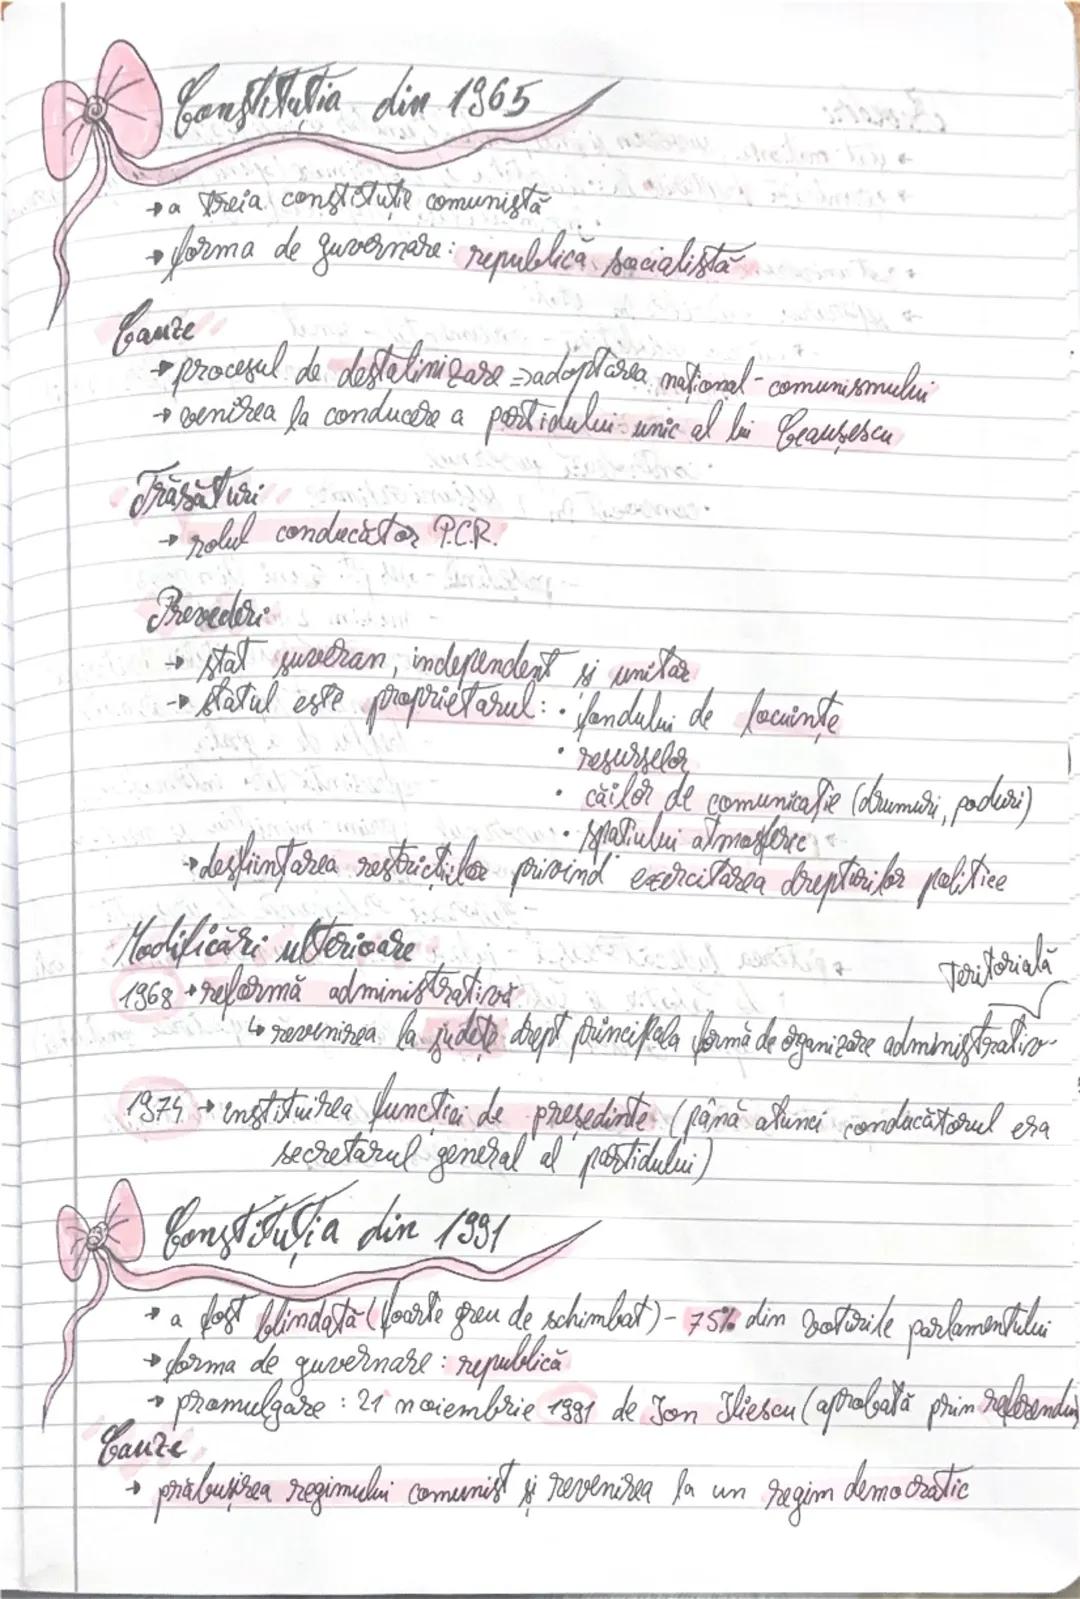 Constituția din 1965
→ a treia constituție comunistă
→ forma de guvernare: republică socialistă
Cauze
→ procesul de destalinizare => adoptarea național-comunismului
→ venirea la conducere a partidului unic al lui Ceaușescu
Trăsături
→ rolul conducător P.C.R.
Prevederi
→ stat suveran, independent și unitar
→ statul este proprietarul: • fondului de locuințe
• resurselor
• căilor de comunicație (drumuri, poduri)
• spațiului atmosferic
→ desființarea restricțiilor privind exercitarea drepturilor politice
Modificări ulterioare
1968 → reformă administrativă
teritorială
↳ revenirea la județe drept principala formă de organizare administrativ-
1974 → instituirea funcției de președinte (până atunci conducătorul era
secretarul general al partidului)
Constituția din 1991
→ a fost blindată (foarte greu de schimbat) - 75% din voturile parlamentului
→ forma de guvernare: republică
→ promulgare: 21 noiembrie 1991 de Ion Iliescu (aprobată prin referendum
Cauze
→ prăbușirea regimului comunist și revenirea la un regim democratic